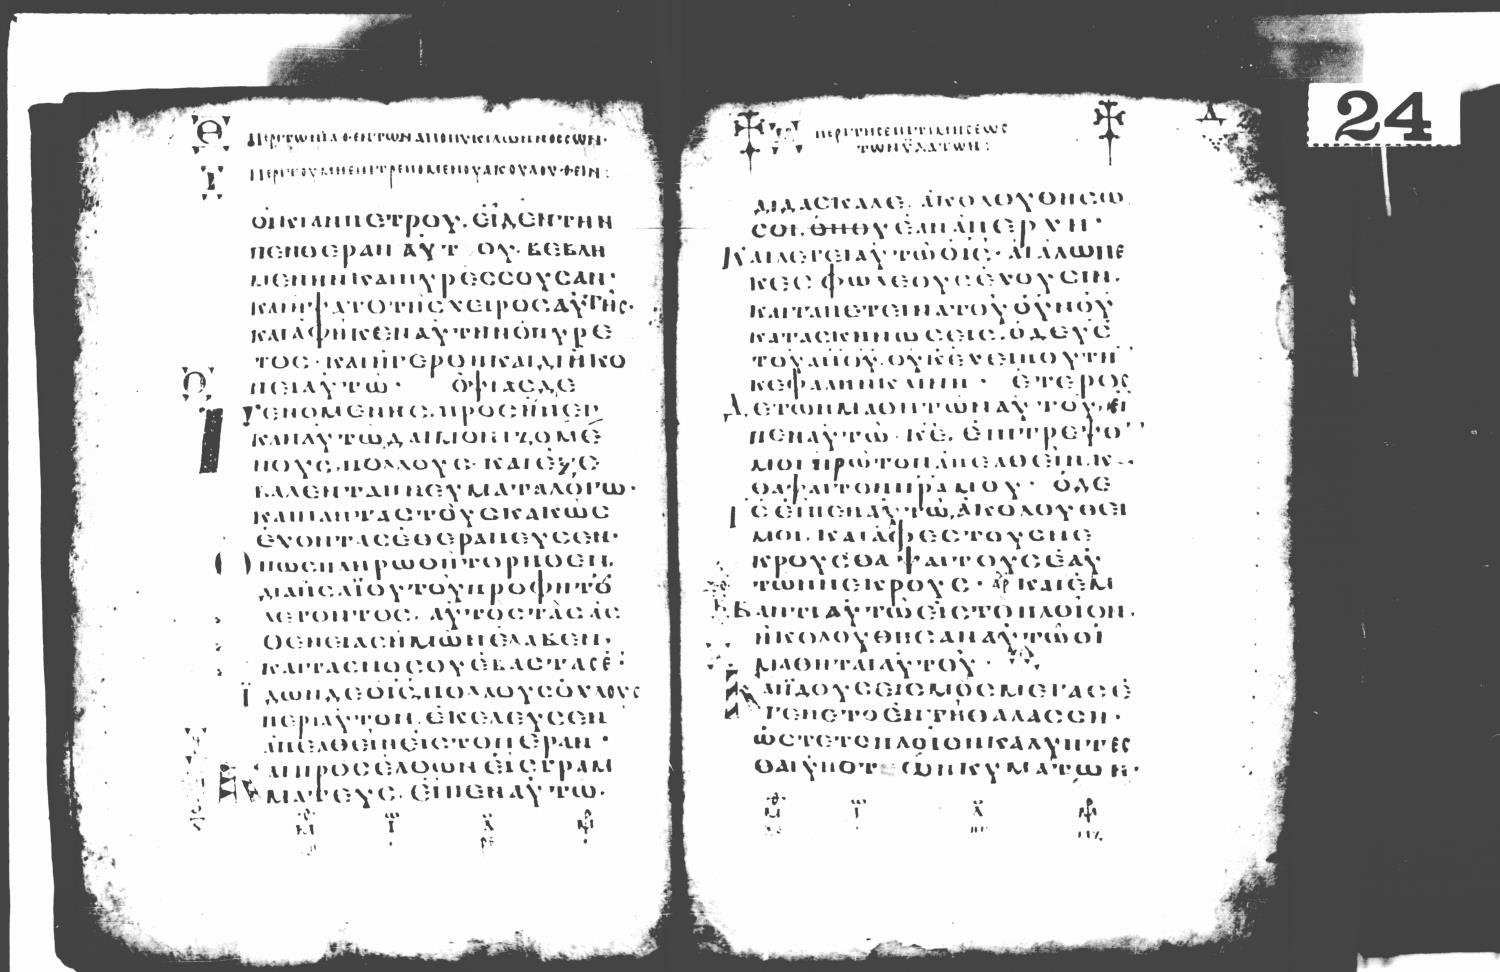 Θ ΠΕΡΙ ΤΩΝ ΙΑΘΕΝΤΩΝ ΑΠΟ ΠΟΙΚΙΛΩΝ ΝΟΣΩΝ·
Ι ΠΕΡΙ ΤΟΥ ΜΗ ΕΠΙΤΡΕΠΟΜΕΝΟΥ ΑΚΟΛΟΥΘΕΙΝ:
ΟΙΚΙΑΝ ΠΕΤΡΟΥ. ΕΙΔΕΝ ΤΗΝ
ΠΕΝΘΕΡΑΝ ΑΥΤΟΥ· ΒΕΒΛΗ
ΜΕΝΗΝ ΚΑΙ ΠΥΡΕΣΣΟΥΣΑΝ·
ΚΑΙ ΗΨΑΤΟ ΤΗΣ ΧΕΙΡΟΣ ΑΥΤΗΣ·
ΚΑΙ ΑΦΗΚΕΝ ΑΥΤΗΝ Ο ΠΥΡΕ
ΤΟΣ· ΚΑΙ ΗΓΕΡΘΗ ΚΑΙ ΔΙΗΚΟ
ΝΕΙ ΑΥΤΩ· ΟΨΙΑΣ ΔΕ
ΓΕΝΟΜΕΝΗΣ. ΠΡΟΣΗΝΕΓ
ΚΑΝ ΑΥΤΩ ΔΑΙΜΟΝΙΖΟΜΕ
ΝΟΥΣ. ΠΟΛΛΟΥΣ· ΚΑΙ ΕΞΕ
ΒΑΛΕΝ ΤΑ ΠΝΕΥΜΑΤΑ ΛΟΓΩ·
ΚΑΙ ΠΑΝΤΑΣ ΤΟΥΣ ΚΑΚΩΣ
ΕΧΟΝΤΑΣ ΕΘΕΡΑΠΕΥΣΕΝ·
ΟΠΩΣ ΠΛΗΡΩΘΗ ΤΟ ΡΗΘΕΝ.
ΔΙΑ ΗΣΑΪΟΥ ΤΟΥ ΠΡΟΦΗΤΟΥ
ΛΕΓΟΝΤΟΣ. ΑΥΤΟΣ ΤΑΣ ΑΣ
ΘΕΝΕΙΑΣ ΗΜΩΝ ΕΛΑΒΕΝ.
ΚΑΙ ΤΑΣ ΝΟΣΟΥΣ ΕΒΑΣΤΑΣΕ·
ΪΔΩΝ ΔΕ Ο ΙΣ ΠΟΛΛΟΥΣ ΟΧΛΟΥΣ
ΠΕΡΙ ΑΥΤΟΝ. ΕΚΕΛΕΥΣΕΝ
ΑΠΕΛΘΕΙΝ ΕΙΣ ΤΟ ΠΕΡΑΝ·
ΚΑΙ ΠΡΟΣΕΛΘΩΝ ΕΙΣ ΓΡΑΜ
ΜΑΤΕΥΣ. ΕΙΠΕΝ ΑΥΤΩ.
ΠΕΡΙ ΤΗΣ ΕΠΙΤΙΜΗΣΕΩΣ
ΤΩΝ ΥΔΑΤΩΝ:
ΔΙΔΑΣΚΑΛΕ. ΑΚΟΛΟΥΘΗΣΩ
ΣΟΙ. ΟΠΟΥ ΕΑΝ ΑΠΕΡΧΗ·
ΚΑΙ ΛΕΓΕΙ ΑΥΤΩ Ο ΙΣ· ΑΙ ΑΛΩΠΕ
ΚΕΣ ΦΩΛΕΟΥΣ ΕΧΟΥΣΙΝ.
ΚΑΙ ΤΑ ΠΕΤΕΙΝΑ ΤΟΥ ΟΥΝΟΥ
ΚΑΤΑΣΚΗΝΩΣΕΙΣ. Ο ΔΕ ΥΣ
ΤΟΥ ΑΝΟΥ. ΟΥΚ ΕΧΕΙ ΠΟΥ ΤΗ
ΚΕΦΑΛΗΝ ΚΛΙΝΗ· ΕΤΕΡΟΣ
ΔΕ ΤΩΝ ΜΑΘΗΤΩΝ ΑΥΤΟΥ. ΕΙ
ΠΕΝ ΑΥΤΩ· ΚΕ. ΕΠΙΤΡΕΨΟ
ΜΟΙ ΠΡΩΤΟΝ ΑΠΕΛΘΕΙΝ. Κ
ΘΑΨΑΙ ΤΟΝ ΠΡΑ ΜΟΥ· Ο ΔΕ
ΙΣ ΕΙΠΕΝ ΑΥΤΩ. ΑΚΟΛΟΥΘΕΙ
ΜΟΙ. ΚΑΙ ΑΦΕΣ ΤΟΥΣ ΝΕ
ΚΡΟΥΣ ΘΑΨΑΙ ΤΟΥΣ ΕΑΥ
ΤΩΝ ΝΕΚΡΟΥΣ· ΑΡ ΚΑΙ ΕΜ
ΒΑΝΤΙ ΑΥΤΩ ΕΙΣ ΤΟ ΠΛΟΙΟΝ.
ΗΚΟΛΟΥΘΗΣΑΝ ΑΥΤΩ ΟΙ
ΜΑΘΗΤΑΙ ΑΥΤΟΥ·
ΚΑΙ ΪΔΟΥ ΣΕΙΣΜΟΣ ΜΕΓΑΣ Ε
ΓΕΝΕΤΟ ΕΝ ΤΗ ΘΑΛΑΣΣΗ·
ΩΣΤΕ ΤΟ ΠΛΟΙΟΝ ΚΑΛΥΠΤΕΣ
ΘΑΙ ΥΠΟ ΤΩΝ ΚΥΜΑΤΩΝ·
24